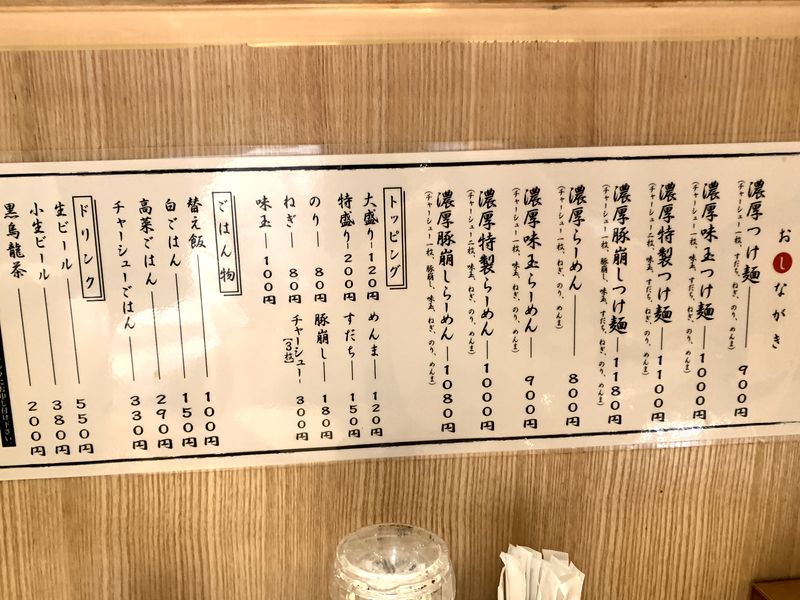 おしながき
濃厚つけ麺 900円
(チャーシュー一枚、すだち、ねぎ、のり、めんま)
濃厚味玉つけ麺 1000円
(チャーシュー一枚、味玉、すだち、ねぎ、のり、めんま)
濃厚特製つけ麺 1100円
(チャーシュー二枚、味玉、すだち、ねぎ、のり、めんま)
濃厚豚崩しつけ麺 1180円
(チャーシュー一枚、豚崩し、味玉、すだち、ねぎ、のり、めんま)
濃厚らーめん 800円
(チャーシュー一枚、ねぎ、のり、めんま)
濃厚味玉らーめん 900円
(チャーシュー一枚、味玉、ねぎ、のり、めんま)
濃厚特製らーめん 1000円
(チャーシュー二枚、味玉、ねぎ、のり、めんま)
濃厚豚崩しらーめん 1080円
(チャーシュー一枚、豚崩し、味玉、ねぎ、のり、めんま)
トッピング
大盛り 120円 めんま 120円
特盛り 200円 すだち 150円
のり 80円 豚崩し 180円
ねぎ 80円 チャーシュー【3枚】 300円
味玉 100円
ごはん物
替え飯 100円
白ごはん 150円
高菜ごはん 290円
チャーシューごはん 330円
ドリンク
生ビール 550円
小生ビール 380円
黒烏龍茶 200円
にお申し付け下さい